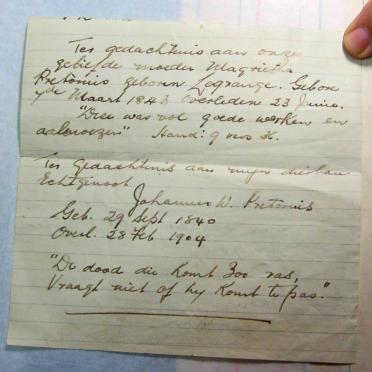 Ter gedachtenis aan onze
geliefde moeder Magrieta
Pretorius geboren Lagrange. Gebore
7de Maart 1843 Overleden 23 Junie.
"Dese was vol goede werken en
aalmoezen" Hand: 9 vers 36.
Ter Gedachtenis aan mijn dierbare
Echtgenoot
Johannes W. Pretorius
Geb. 29 Sept 1840
Overl. 28 Feb 1904
"De dood die komt Zoo ras,
Vraagt niet of hy komt te pas."